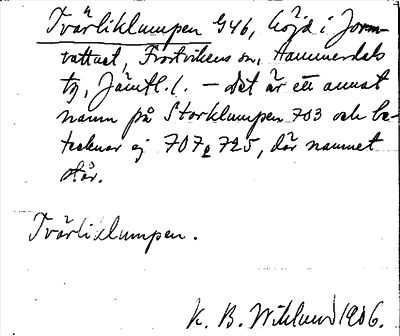 Tvärliklumpen 946, höjd i Jorm-
vattnet, Frostvikens sn, Hammerdals
tg, Jämtl. l. — Det är ett annat
namn på Storklumpen 703 och be-
tecknar ej 707 725, där namnet
står.
Tvärliklumpen.
K. B. Wiklund 1906.